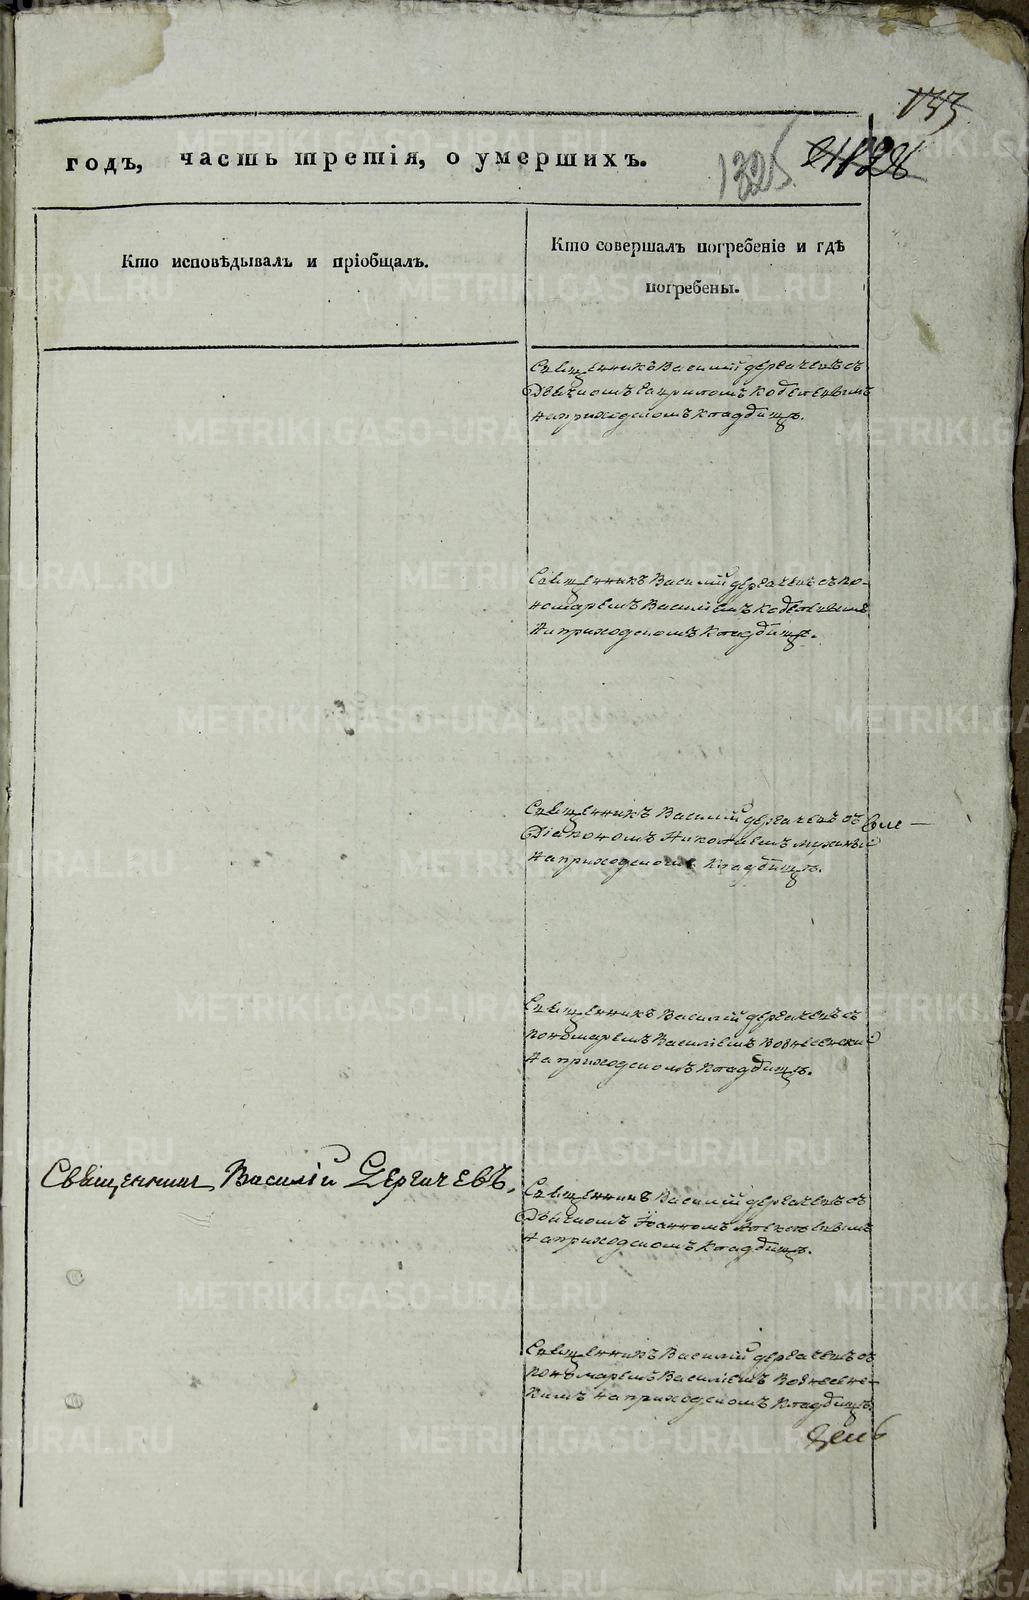 133
годъ, часть третія, о умершихъ.
1325
Кто исповѣдывалъ и пріобщалъ.
Кто совершалъ погребеніе и гдѣ
погребены.
Священникъ Василий Дергачевъ съ
на приходскомъ кладбищѣ.
Священникъ Василий Дергачевъ съ по-
номаремъ Василіемъ
на приходскомъ кладбищѣ.
Священникъ Василий Дергачевъ съ
Діакономъ Николаемъ
на приходскомъ кладбищѣ.
Священникъ Василий Дергачевъ съ
пономаремъ Василіемъ Вознесенский
на приходскомъ кладбищѣ.
Священникъ Василій Дергачевъ,
Священникъ Василий Дергачевъ съ
Дьячкомъ Іоанномъ
на приходскомъ кладбищѣ.
Священникъ Василий Дергачевъ съ
пономаремъ Василіемъ Вознесенс-
кимъ на приходскомъ кладбищѣ.
METRIKI.GASO-URAL.RU